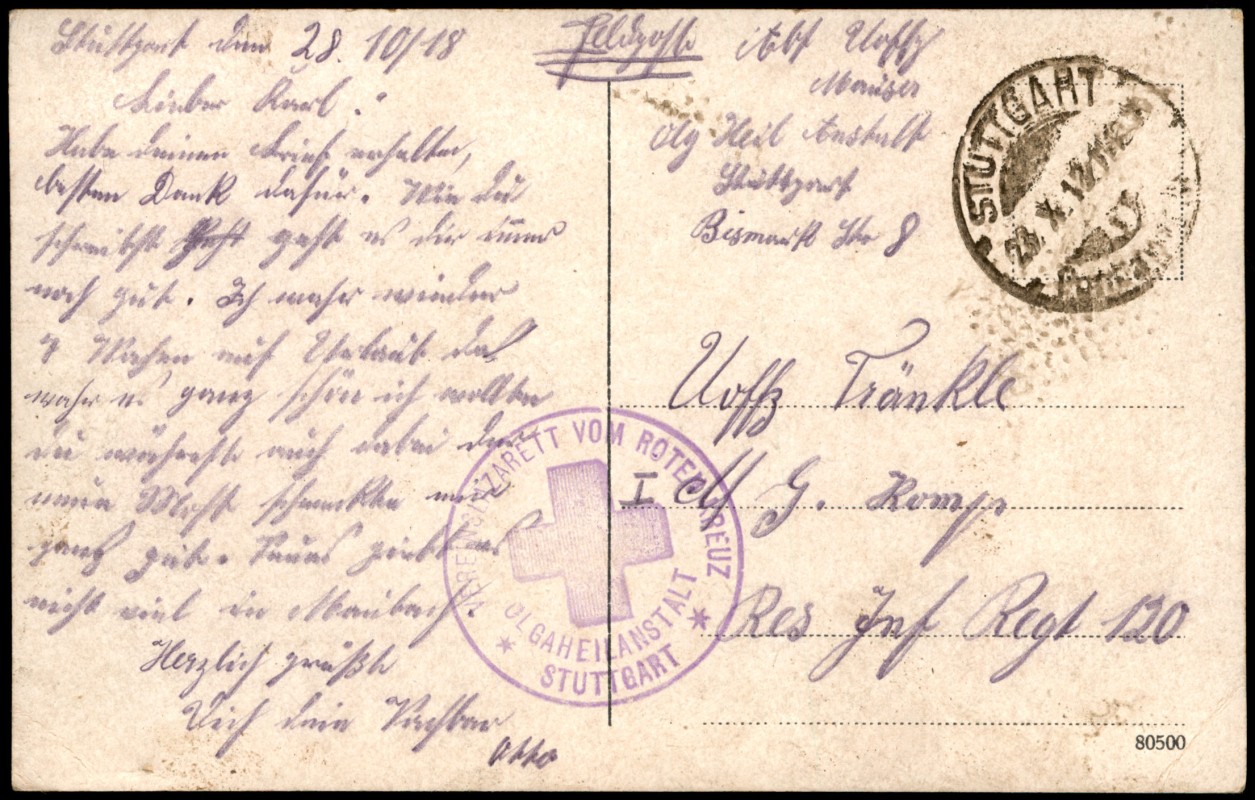 Stuttgart den 28. 10/18
Lieber Karl.
Habe deinen Brief erhalten,
besten Dank dafür. Wie du
schreibst geht es dir immer
noch gut. Ich wahr wieder
Wochen auf Urlaub da
wahr es ganz schön ich wollte
du wärest auch dabei der
neue Most schmeckte mir
ganz gut. Neues giebt es
nicht viel in Maubach.
Herzlich grüßte
Dich dein Nachbar
Otto
Feldposte
Abs Uoffz
Mauser
Olg Heil Anstalt
Stuttgart
Bismark Str 8
STUTTGART
28. X. 18
Uoffz Tränkle
I M. G. Komp
Res Inf Regt 120
VEREINSLAZARETT VOM ROTEN KREUZ
* OLGAHEILANSTALT *
STUTTGART
80500